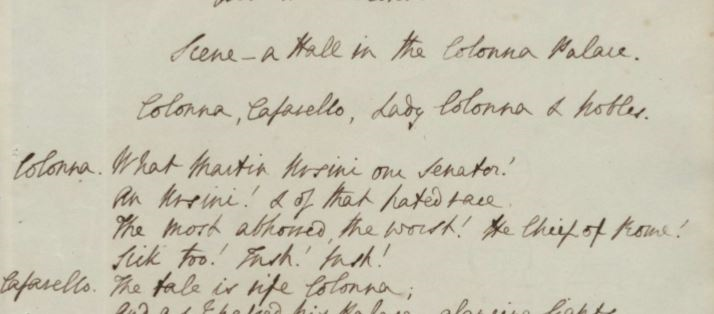 Scene – a Hall in the Colonna Palace.
Colonna, Cafarello, Lady Colonna & Nobles.
Colonna. What Martin Ursini our Senator!
An Ursini! & of that hated race
The most abhorred, the worst! He Chief of Rome!
Sick too! Tush! tush!
Cafarello. The tale is rife Colonna;
And as I passed his Palace, glancing lights